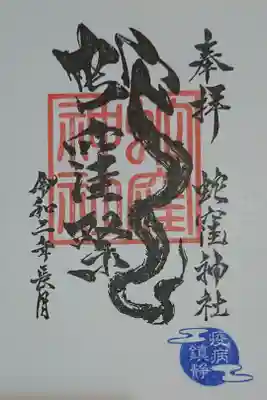 奉拝 蛇窪神社
蛇窪祭
蛇窪
神社
令和二年長月
疫病
鎮静